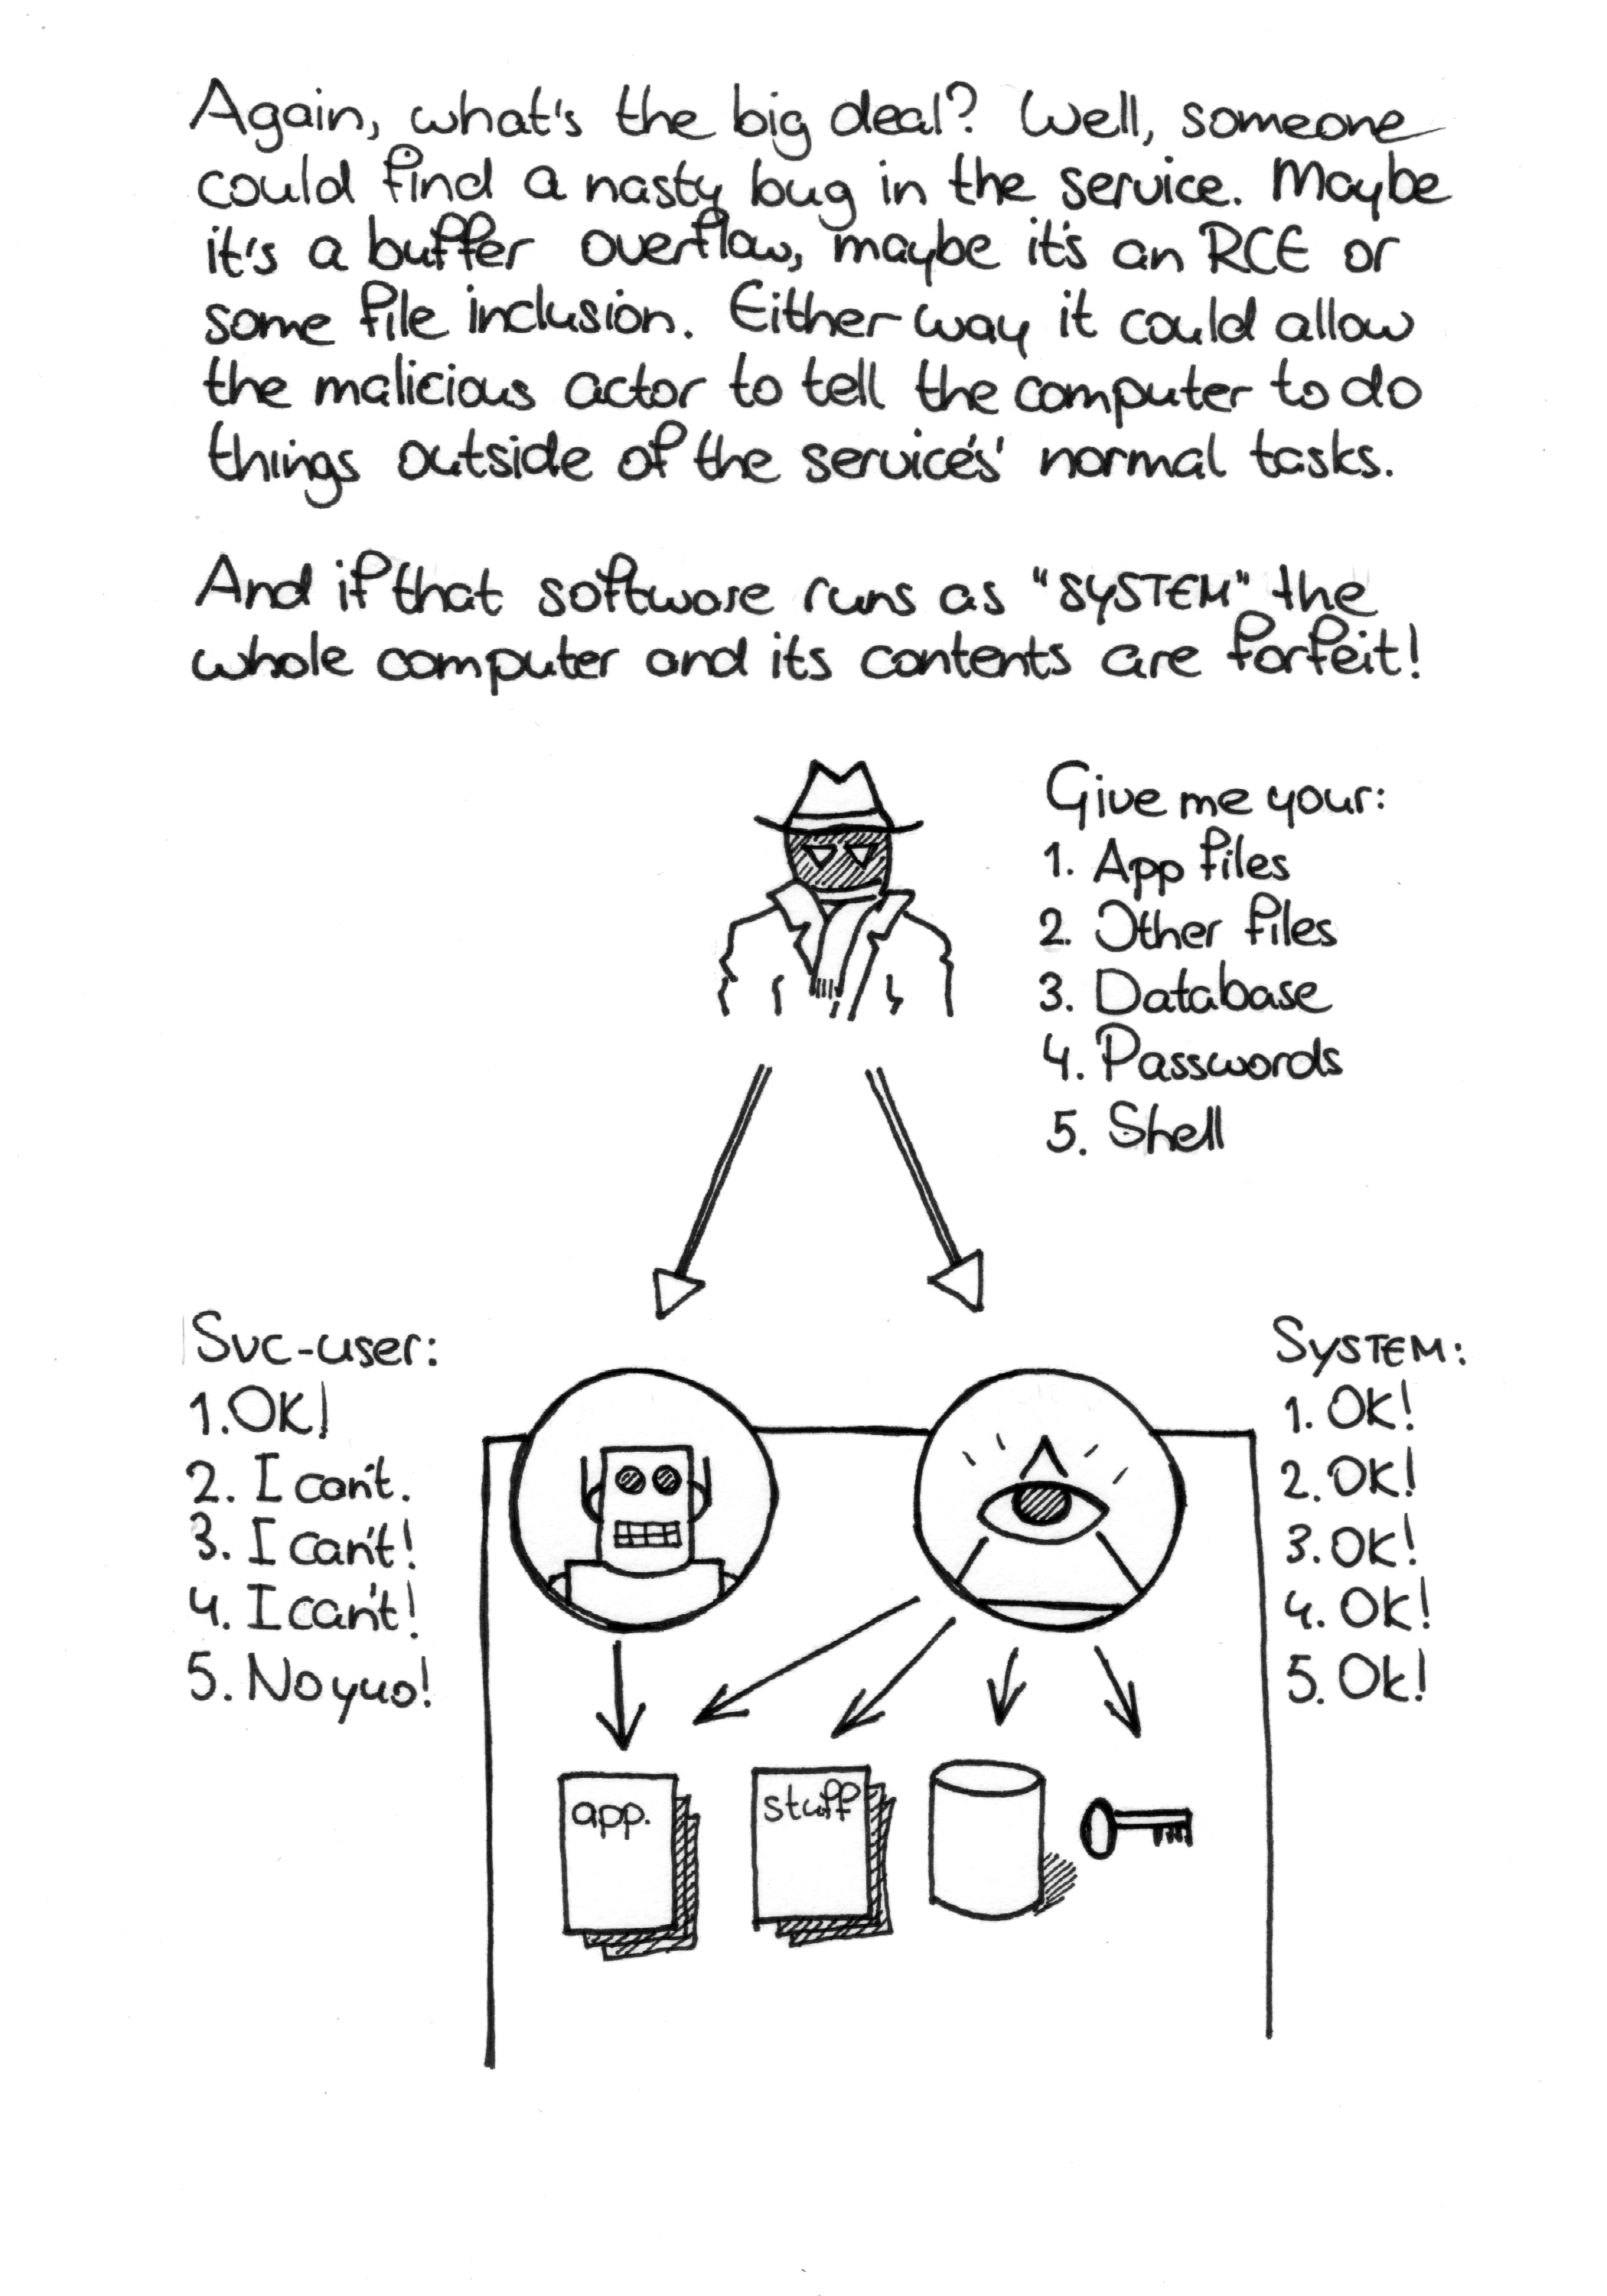 Again, what's the big deal? Well, someone
could find a nasty bug in the service. Maybe
it's a buffer overflow, maybe it's an RCE or
some file inclusion. Either way it could allow
the malicious actor to tell the computer to do
things outside of the service's' normal tasks.
And if that software runs as "SYSTEM" the
whole computer and its contents are forfeit!
Give me your:
1. App files
2. Other files
3. Database
4. Passwords
5. Shell
Svc-user:
1. OK!
2. I can't.
3. I can't!
4. I can't!
5. No yuo!
SYSTEM:
1. OK!
2. OK!
3. OK!
4. OK!
5. Ok!
app.
stuff